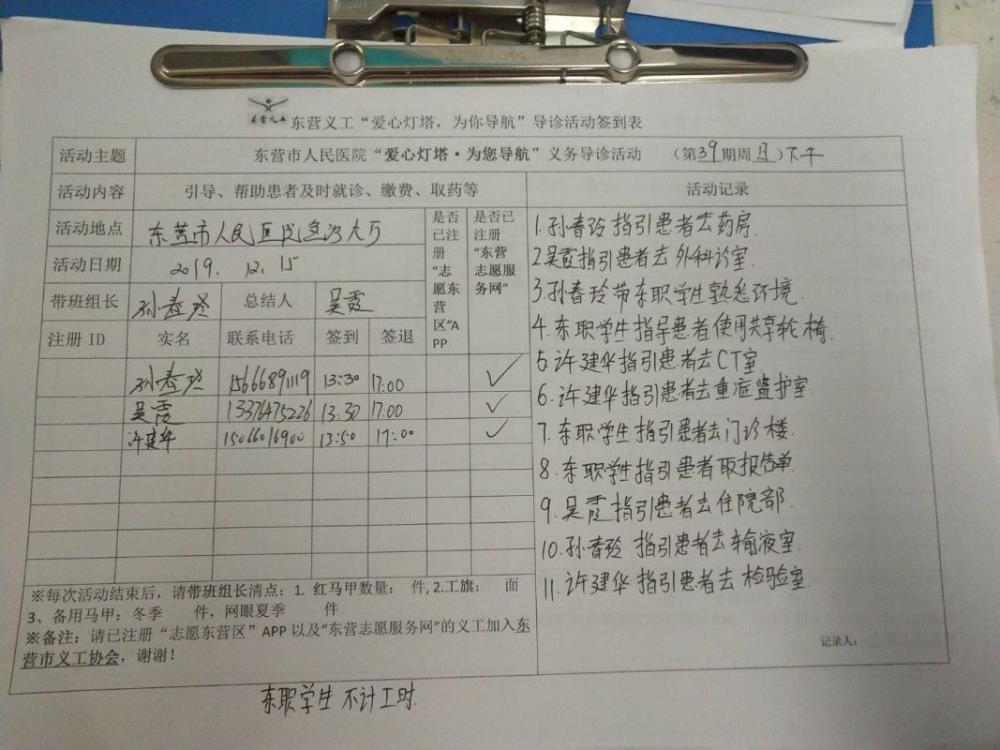 东营义工
东营义工“爱心灯塔，为你导航”导诊活动签到表
活动主题 东营市人民医院“爱心灯塔·为您导航”义务导诊活动 （第39期周日）下午
活动内容 引导、帮助患者及时就诊、缴费、取药等 活动记录
活动地点 东营市人民医院急诊大厅
活动日期 2019. 12. 15
带班组长 孙春玲 总结人 吴霞
注册 ID 实名 联系电话 签到 签退
是否已注册“志愿东营区”APP
是否已注册“东营志愿服务网”
孙春玲 15666891119 13:30 17:00 ✓
吴霞 13376475226 13:30 17:00 ✓
许建华 15066016900 13:50 17:00 ✓
1.孙春玲指引患者去药房.
2.吴霞指引患者去外科诊室.
3.孙春玲带东职学生熟悉环境.
4.东职学生指导患者使用共享轮椅.
5.许建华指引患者去CT室
6.许建华指引患者去重症监护室.
7.东职学生指引患者去门诊楼.
8.东职学生指引患者取报告单.
9.吴霞指引患者去住院部.
10.孙春玲指引患者去输液室.
11.许建华指引患者去检验室.
记录人：
※每次活动结束后，请带班组长清点：1. 红马甲数量： 件, 2.工旗： 面
3、备用马甲：冬季 件，网眼夏季 件
※备注：请已注册“志愿东营区”APP 以及“东营志愿服务网”的义工加入东
营市义工协会，谢谢！
东职学生 不计工时.